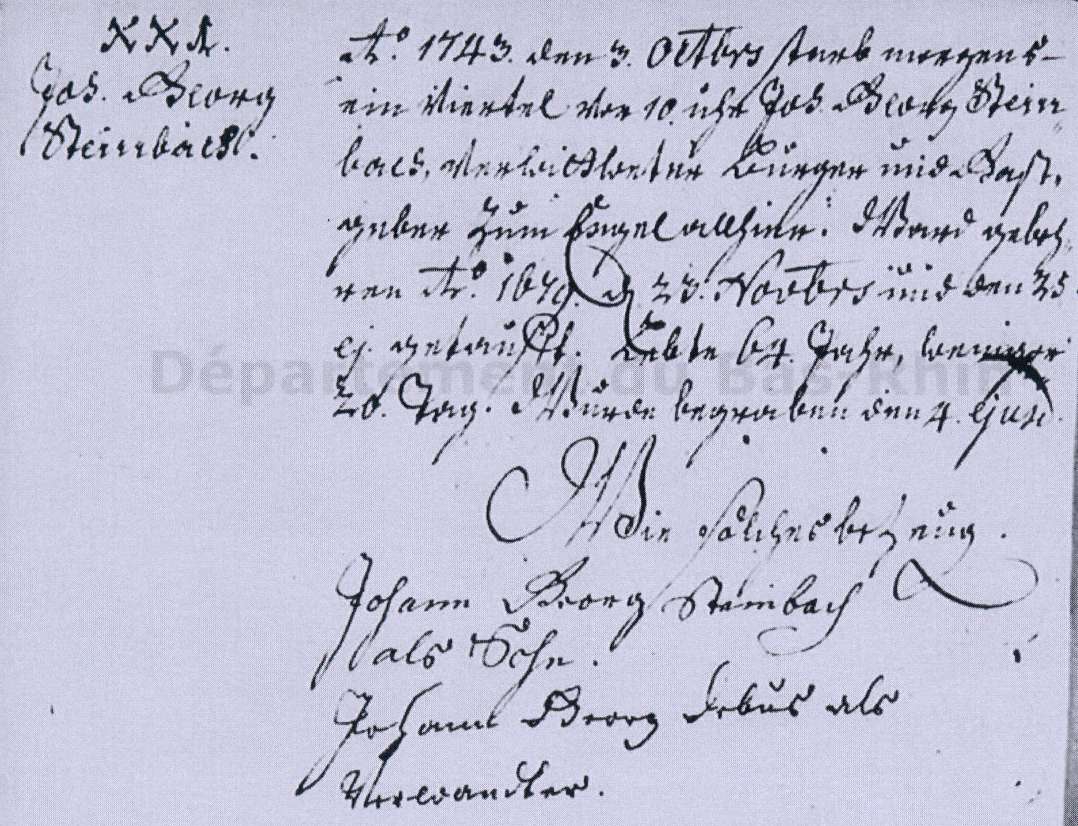 XXX.
Joh. Georg
Steinbach.
Aō. 1743. den 3. Octbris starb morgens
ein Viertel vor 10. uhr Joh. Georg Stein
bach, verwittweter Burger und Gast,
geber zum Engel allhier. Ward geboh,
ren Aō. 1679. d. 23. Novbris und den 25.
ej. getaufft. Lebte 64. Jahr, weniger
20. Tag. Wurde begraben den 4. ejusd.
Wie solches bezeug.
Johann Georg Steinbach
als Sohn.
Johann Georg Debus als
Verwandter.
Département du Bas-Rhin